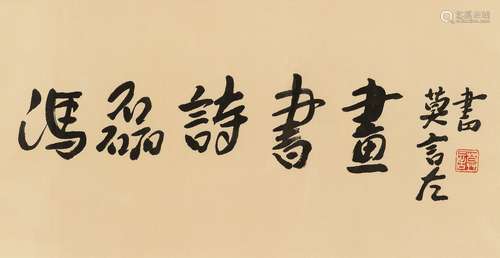 馮磊詩書畫
莫言左
書